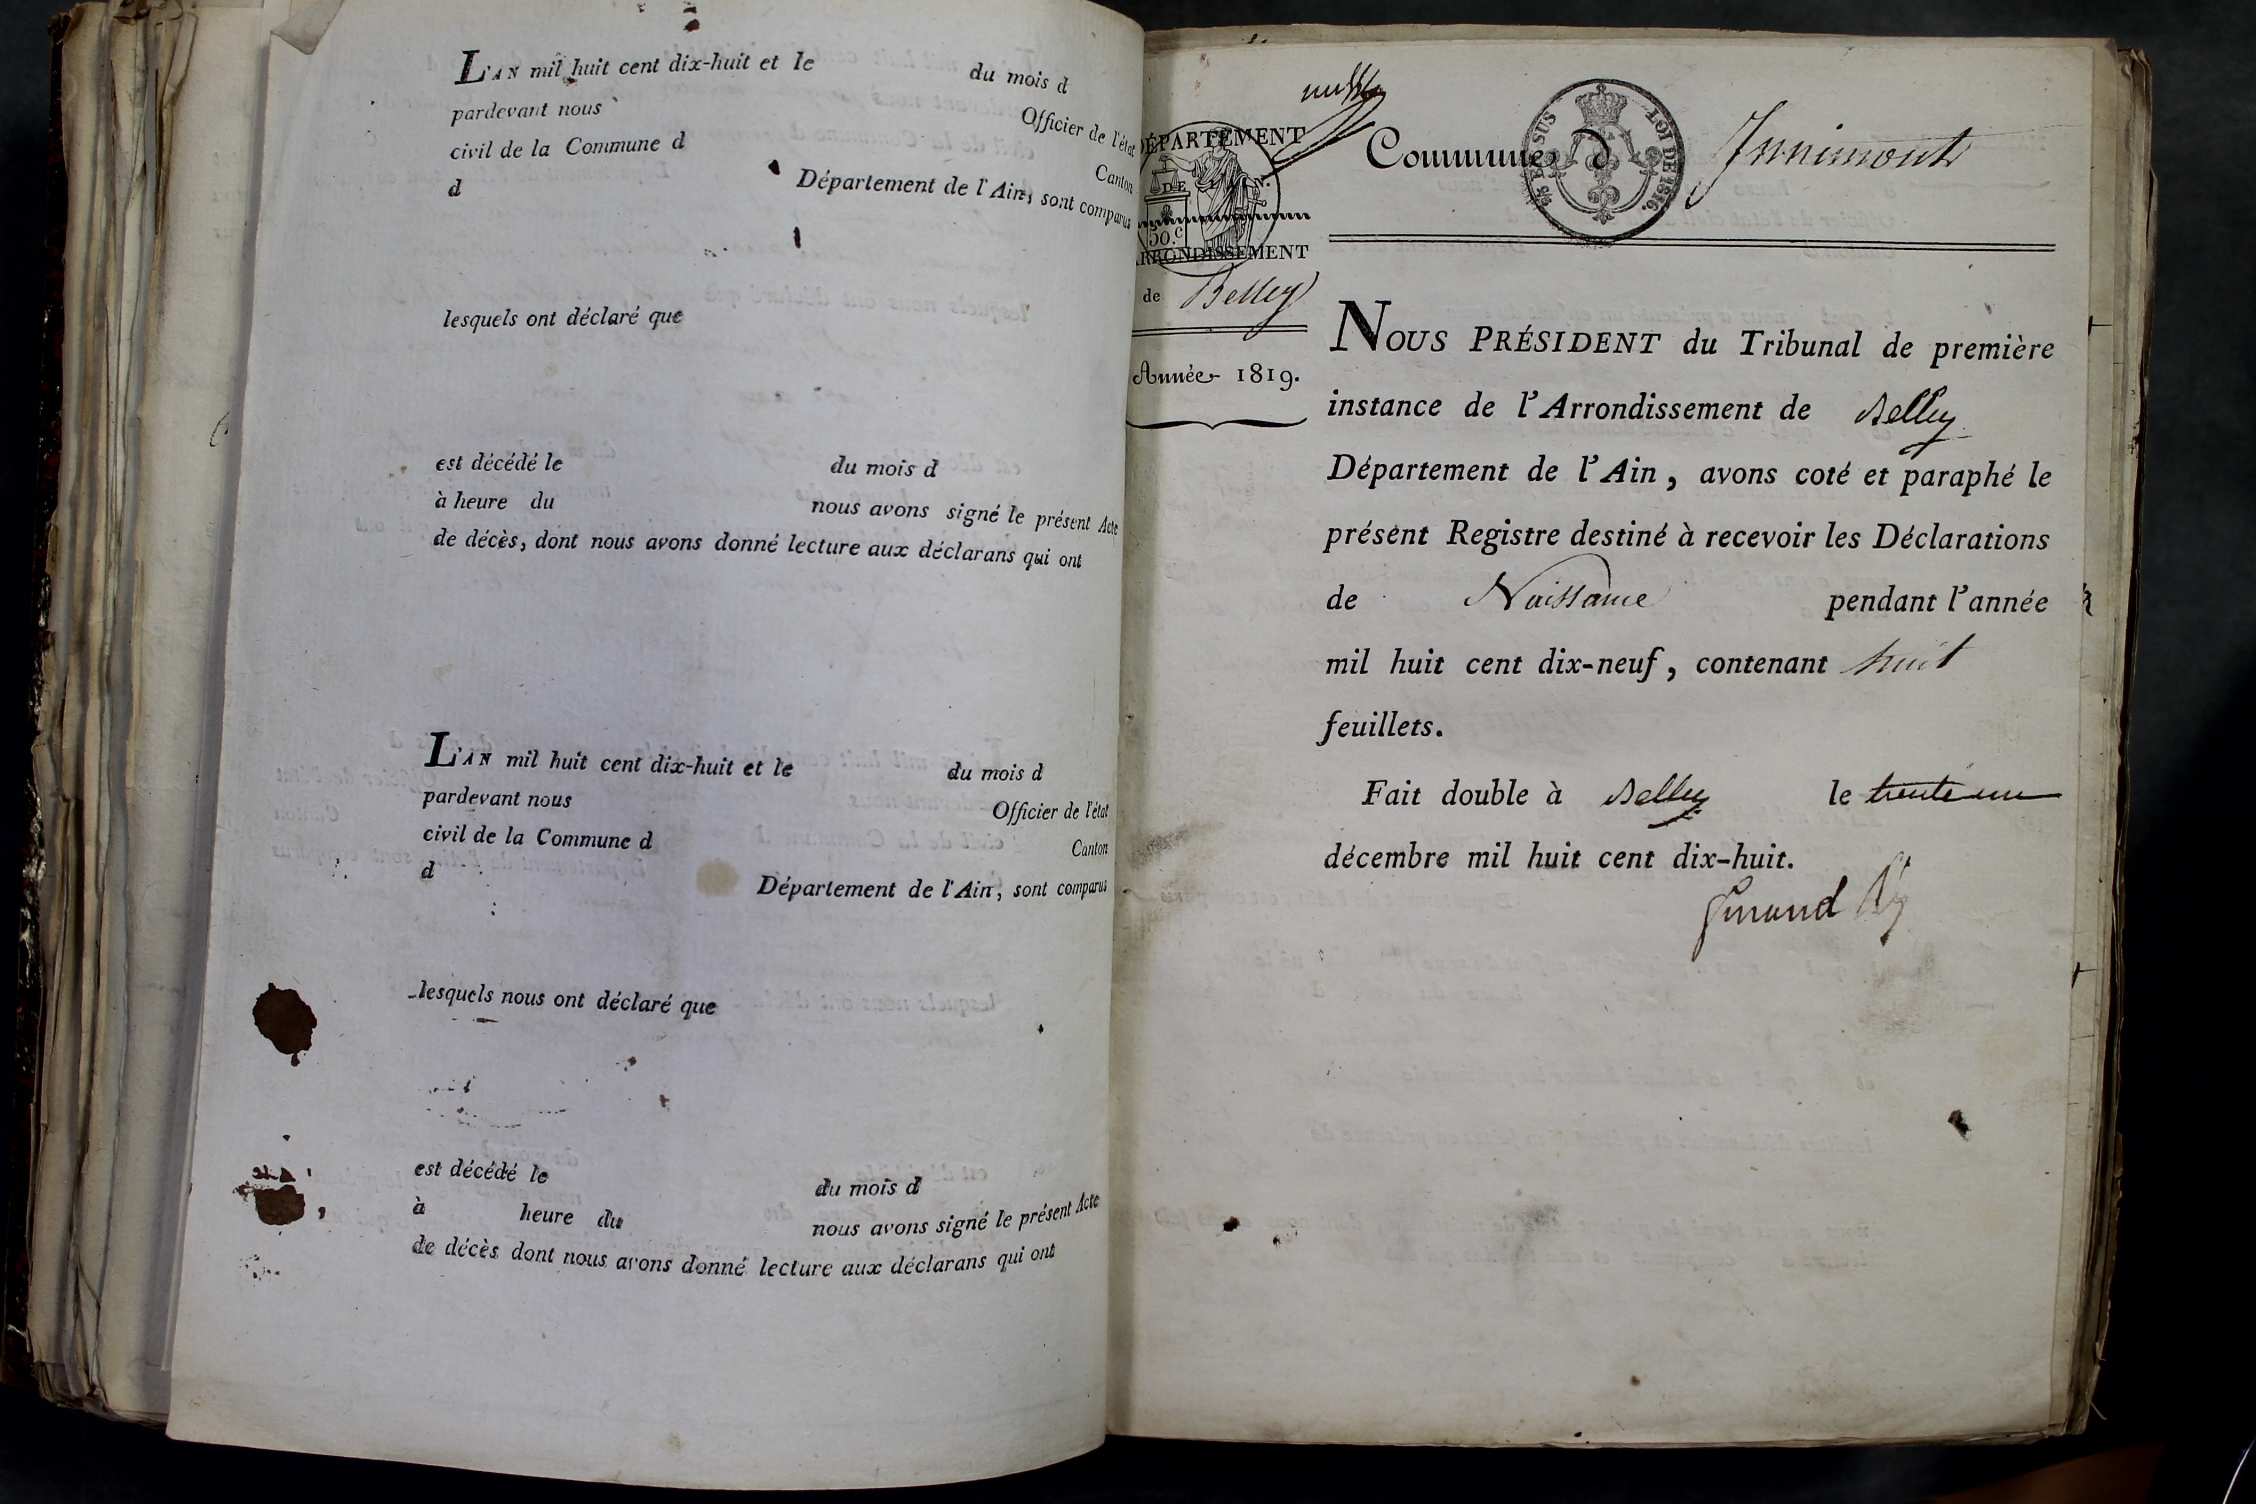 L'AN mil huit cent dix-huit et le du mois d
pardevant nous Officier de l'état
civil de la Commune d Canton
d Département de l'Ain, sont comparus
lesquels ont déclaré que
est décédé le du mois d
à heure du nous avons signé le présent Acte
de décès, dont nous avons donné lecture aux déclarans qui ont
L'AN mil huit cent dix-huit et le du mois d
pardevant nous Officier de l'état
civil de la Commune d Canton
d Département de l'Ain, sont comparus
lesquels nous ont déclaré que
est décédé le du mois d
à heure du nous avons signé le présent Acte
de décès dont nous avons donné lecture aux déclarans qui ont
DÉPARTEMENT
DE L'AIN.
50.c
ARRONDISSEMENT
de Belley
Année 1819.
EN SUS
LOI DE 1816.
Commune d Innimont
NOUS PRÉSIDENT du Tribunal de première
instance de l'Arrondissement de Belley
Département de l'Ain, avons coté et paraphé le
présent Registre destiné à recevoir les Déclarations
de Naissance pendant l'année
mil huit cent dix-neuf, contenant huit
feuillets.
Fait double à Belley le trente un
décembre mil huit cent dix-huit.